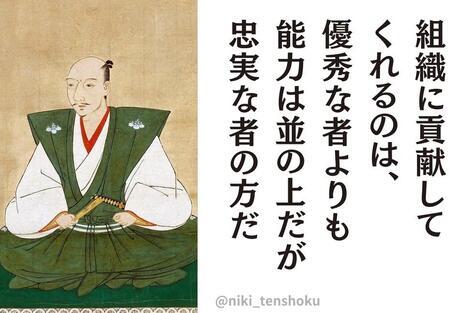 組織に貢献して
くれるのは、
優秀な者よりも
能力は並の上だが
忠実な者の方だ
@niki_tenshoku